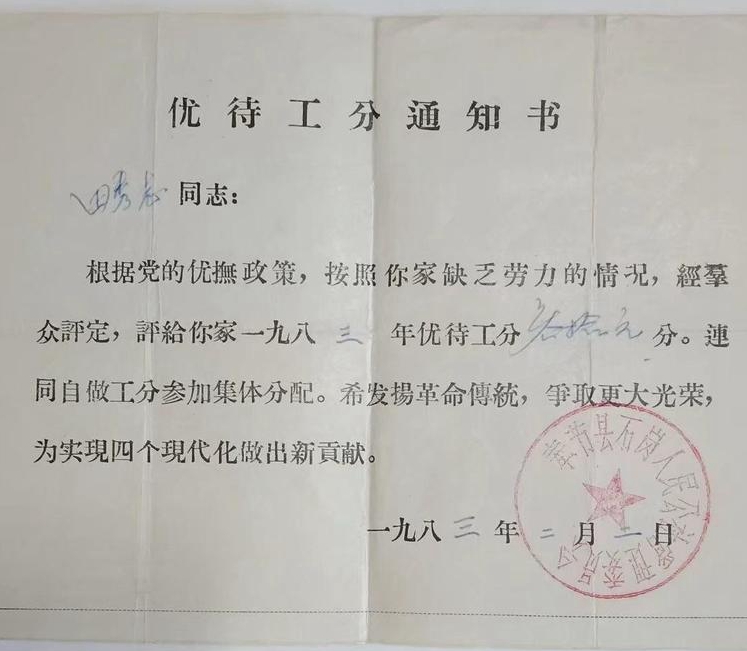 优待工分通知书
田秀志同志：
根据党的优撫政策，按照你家缺乏劳力的情况，經羣
众評定，評給你家一九八三年优待工分拾元分。連
同自做工分参加集体分配。希发揚革命傳統，爭取更大光荣，
为实現四个現代化做出新貢献。
一九八三年二月一日
奉节县石岗人民公社管理委员会